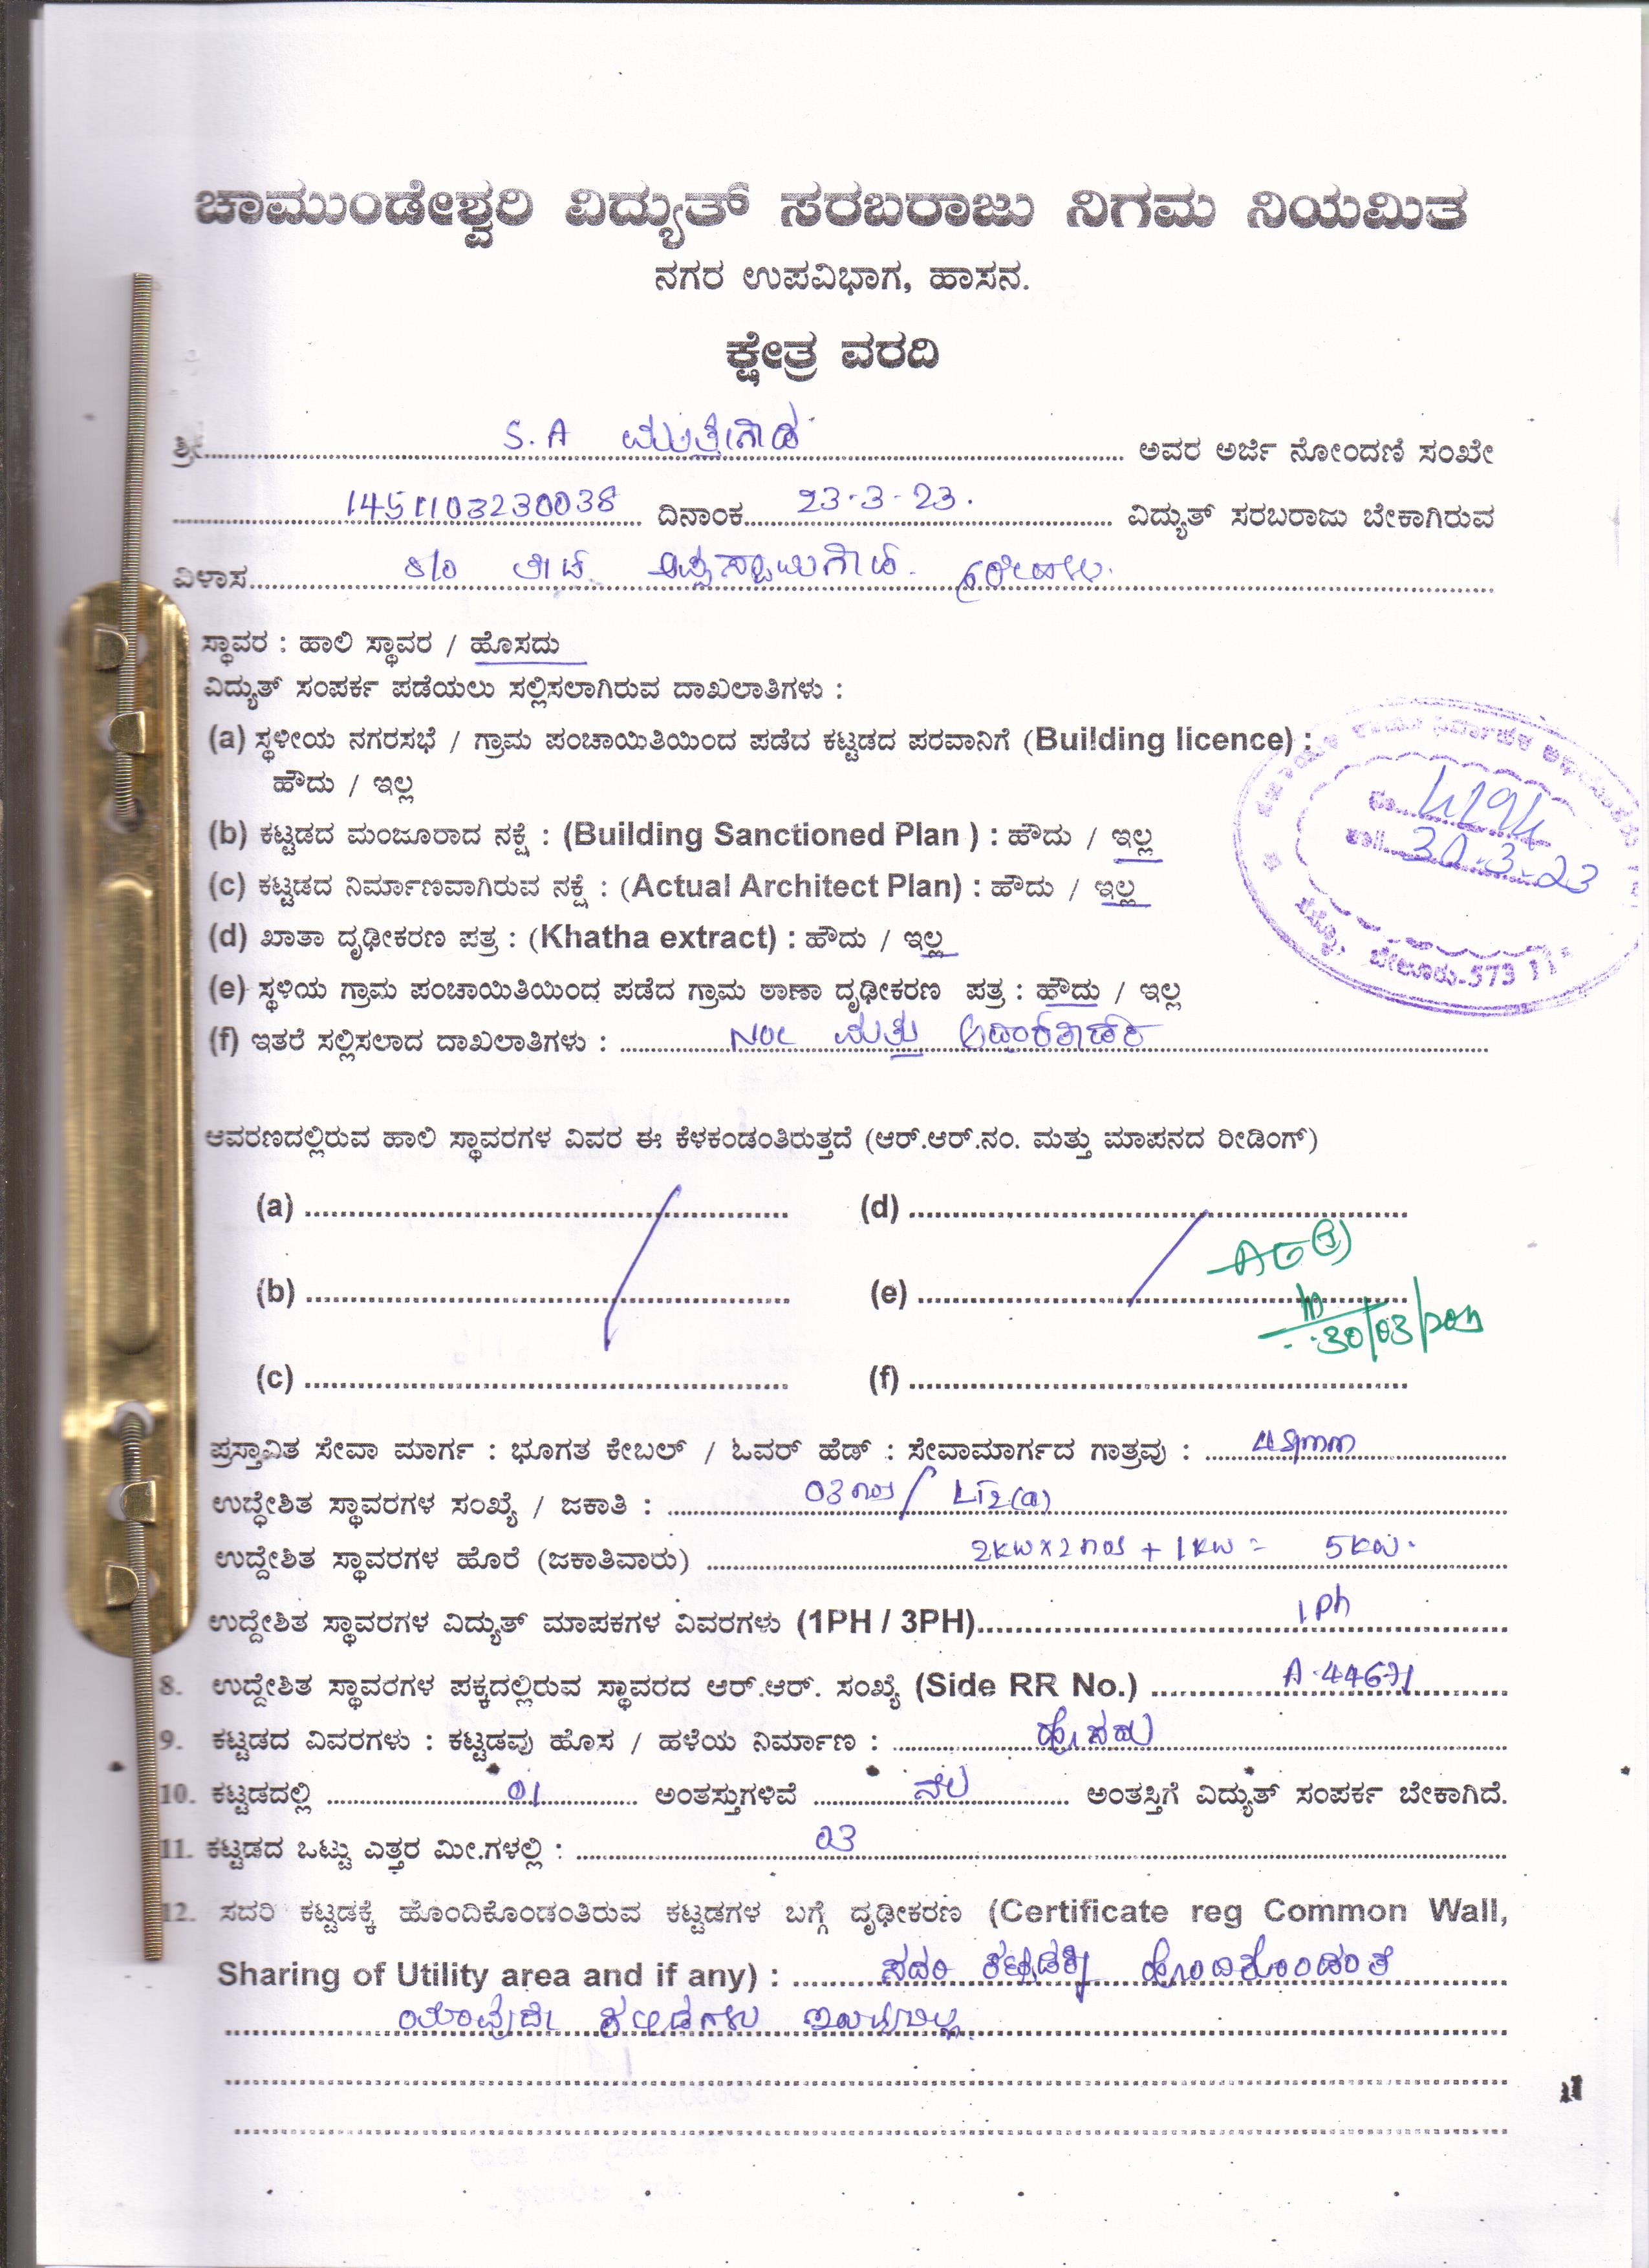 ಚಾಮುಂಡೇಶ್ವರಿ ವಿದ್ಯುತ್ ಸರಬರಾಜು ನಿಗಮ ನಿಯಮಿತ
ನಗರ ಉಪವಿಭಾಗ, ಹಾಸನ.
ಕ್ಷೇತ್ರ ವರದಿ
ಶ್ರೀ S.A ಮುತ್ತೇಗೌಡ ಅವರ ಅರ್ಜಿ ನೋಂದಣಿ ಸಂಖೇ
1451103230038 ದಿನಾಂಕ 23-3-23. ವಿದ್ಯುತ್ ಸರಬರಾಜು ಬೇಕಾಗಿರುವ
ವಿಳಾಸ S/o
ಸ್ಥಾವರ : ಹಾಲಿ ಸ್ಥಾವರ / ಹೊಸದು
ವಿದ್ಯುತ್ ಸಂಪರ್ಕ ಪಡೆಯಲು ಸಲ್ಲಿಸಲಾಗಿರುವ ದಾಖಲಾತಿಗಳು :
(a) ಸ್ಥಳೀಯ ನಗರಸಭೆ / ಗ್ರಾಮ ಪಂಚಾಯಿತಿಯಿಂದ ಪಡೆದ ಕಟ್ಟಡದ ಪರವಾನಿಗೆ (Building licence) :
ಹೌದು / ಇಲ್ಲ
(b) ಕಟ್ಟಡದ ಮಂಜೂರಾದ ನಕ್ಷೆ : (Building Sanctioned Plan ) : ಹೌದು / ಇಲ್ಲ
(c) ಕಟ್ಟಡದ ನಿರ್ಮಾಣವಾಗಿರುವ ನಕ್ಷೆ : (Actual Architect Plan) : ಹೌದು / ಇಲ್ಲ
(d) ಖಾತಾ ದೃಢೀಕರಣ ಪತ್ರ : (Khatha extract) : ಹೌದು / ಇಲ್ಲ
(e) ಸ್ಥಳಿಯ ಗ್ರಾಮ ಪಂಚಾಯಿತಿಯಿಂದ ಪಡೆದ ಗ್ರಾಮ ಠಾಣಾ ದೃಢೀಕರಣ ಪತ್ರ : ಹೌದು / ಇಲ್ಲ
(f) ಇತರೆ ಸಲ್ಲಿಸಲಾದ ದಾಖಲಾತಿಗಳು : NOC ಮತ್ತು
4294
30-3-23
ಬೇಲೂರು-573 11
ಆವರಣದಲ್ಲಿರುವ ಹಾಲಿ ಸ್ಥಾವರಗಳ ವಿವರ ಈ ಕೆಳಕಂಡಂತಿರುತ್ತದೆ (ಆರ್.ಆರ್.ನಂ. ಮತ್ತು ಮಾಪನದ ರೀಡಿಂಗ್)
(a) (d)
(b) (e)
30/03/2023
(c) (f)
ಪ್ರಸ್ತಾವಿತ ಸೇವಾ ಮಾರ್ಗ : ಭೂಗತ ಕೇಬಲ್ / ಓವರ್ ಹೆಡ್ : ಸೇವಾಮಾರ್ಗದ ಗಾತ್ರವು : 4Sqmm
ಉದ್ಧೇಶಿತ ಸ್ಥಾವರಗಳ ಸಂಖ್ಯೆ / ಜಕಾತಿ : 03 nos / LT2(a)
ಉದ್ದೇಶಿತ ಸ್ಥಾವರಗಳ ಹೊರೆ (ಜಕಾತಿವಾರು) 2KW x 2 nos + 1KW = 5KW.
ಉದ್ದೇಶಿತ ಸ್ಥಾವರಗಳ ವಿದ್ಯುತ್ ಮಾಪಕಗಳ ವಿವರಗಳು (1PH / 3PH) 1Ph
8. ಉದ್ದೇಶಿತ ಸ್ಥಾವರಗಳ ಪಕ್ಕದಲ್ಲಿರುವ ಸ್ಥಾವರದ ಆರ್.ಆರ್. ಸಂಖ್ಯೆ (Side RR No.) A.44671
9. ಕಟ್ಟಡದ ವಿವರಗಳು : ಕಟ್ಟಡವು ಹೊಸ / ಹಳೆಯ ನಿರ್ಮಾಣ : ಹೊಸದು
10. ಕಟ್ಟಡದಲ್ಲಿ 01 ಅಂತಸ್ತುಗಳಿವೆ ನೆಲ ಅಂತಸ್ತಿಗೆ ವಿದ್ಯುತ್ ಸಂಪರ್ಕ ಬೇಕಾಗಿದೆ.
11. ಕಟ್ಟಡದ ಒಟ್ಟು ಎತ್ತರ ಮೀ.ಗಳಲ್ಲಿ : 03
12. ಸದರಿ ಕಟ್ಟಡಕ್ಕೆ ಹೊಂದಿಕೊಂಡಂತಿರುವ ಕಟ್ಟಡಗಳ ಬಗ್ಗೆ ದೃಢೀಕರಣ (Certificate reg Common Wall,
Sharing of Utility area and if any) : ಸದರಿ ಕಟ್ಟಡಕ್ಕೆ ಹೊಂದಿಕೊಂಡಂತೆ
ಯಾವುದೇ ಕಟ್ಟಡಗಳು ಇರುವುದಿಲ್ಲ